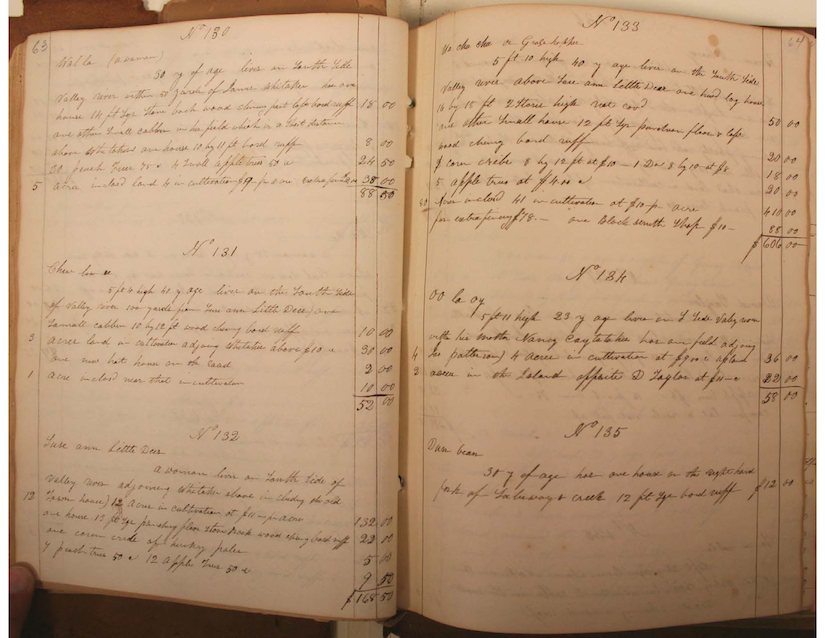 63
No 130
Walla (a woman)
30 y of age lives on South Side
Valley river within yards of James Whitaker has one
house 14 ft Sqr Stone back wood chimy part loft bord ruff 18 00
one other Small cabben in her field which is a Short distance
above Whitakers one house 10 by 11 ft bord ruff 8 00
20 peach trees 4 Small apple trees 50 c 24 50
5 acres inclosd land 4 in cultivation 38 00
88 50
No 131
5 ft 4 high 60 y age lives on the South Side
of Valley river 100 yards from Suse ann Little Deer) one
Small cabben 10 by 12 ft wood chimy bord ruff 10 00
3 acres land in cultivation adjoing Whitaker above $10 c 30 00
one new hot house on the road 2 00
1 acre inclosd near that in cultivation 10 00
52 00
No 132
Suse ann Little Deer
a woman lives on South Side of
Valley river adjoining Whitaker above including the old
12 Town house) 12 acres in cultivation at $11 pr acre 132 00
one house 12 ft Sqr floor Stone back wood chimy bord ruff 22 00
one corn crib of poles 5 00
7 peach trees 50 c 12 apple trees 50 c 9 50
$ 168 50
64
No 133
or Grasshopper
5 ft 10 high 40 y age lives on the South Side
Valley river above Suse ann Little Deer one hewd log house
16 by 15 ft 2 Stories high not covd 50 00
one other Small house 12 ft Sqr puncheon floor & loft
wood chimy bord ruff 20 00
2 corn cribs 8 by 12 ft at $10 — 1 Do 8 by 10 at $8 18 00
5 apple trees at $4.00 c 20 00
acres inclosd 41 in cultivation at $10 pr acre 410 00
for extra fencing $78.— one Black Smith Shop $10— 88 00
$ 606 00
No 134
Oo la
5 ft 11 high 23 y age lives on S Side Valey river
with his mother Nancy has one field adjoing
4 patterson) 4 acres in cultivation at 36 00
2 acres in the Island opposite D Taylor at $11 c 22 00
58 00
No 135
38 y of age has one house on the right hand
fork of creek 12 ft Sqr bord ruff $ 12 00